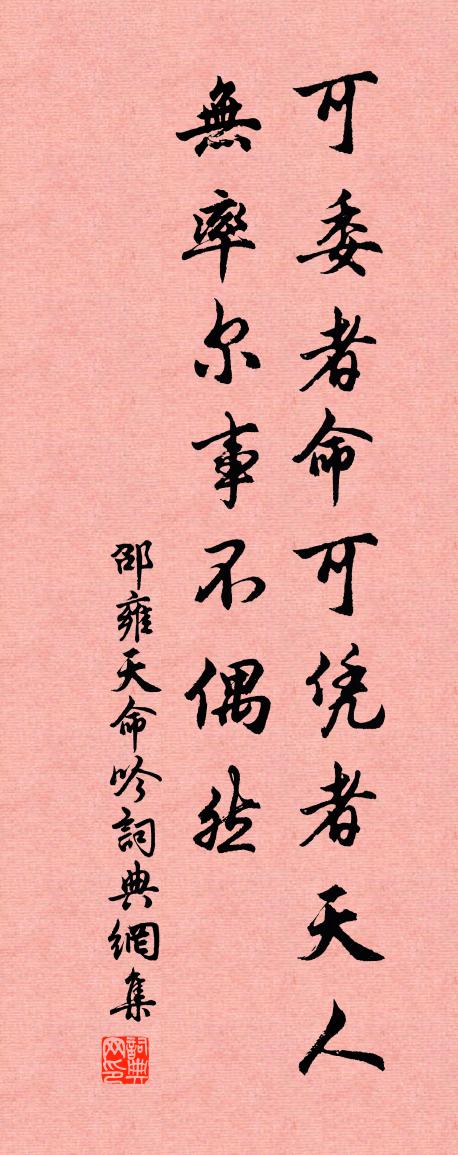 可委者命可凭者天人
無率尔事不偶然
邵雍天命吟詞典網集
詞典网印